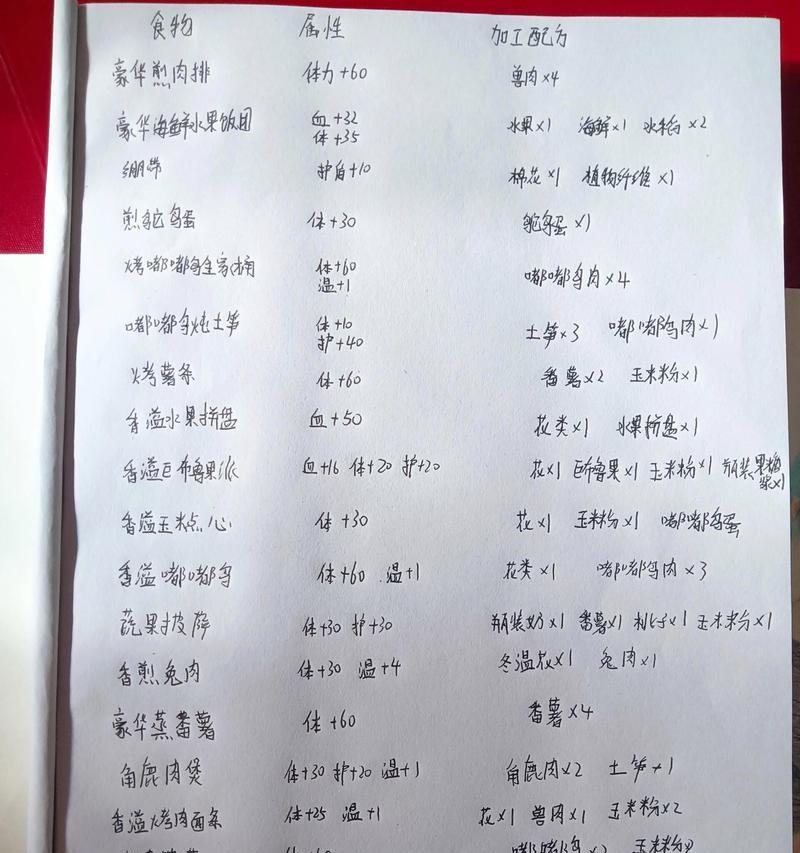 食物 属性 加工配方
豪华煎肉排 体力+60 兽肉×4
豪华海鲜水果饭团 血+32 体+35 水果×1 海鲜×1 水稻×2
绷带 护盾+10 棉花×1 植物纤维×1
煎鸵鸟蛋 体+30 鸵鸟蛋×1
烤嘟嘟鸟全家桶 体+60 温+1 嘟嘟鸟肉×4
嘟嘟鸟炖土笋 体+10 护+40 土笋×3 嘟嘟鸟肉×1
烤薯条 体+60 番薯×2 玉米粉×1
香溢水果拼盘 血+50 花类×1 水果拼盘×1
香溢巨布鲁果派 血+16 体+20 护+20 花×1 巨布鲁果×1 玉米粉×1 瓶装果糖浆×1
香溢玉米点心 体+30 花×1 玉米粉×1 嘟嘟鸟蛋
香溢嘟嘟鸟 体+60 温+1 花类×1 嘟嘟鸟肉×3
蔬果披萨 体+30 护+30 瓶装奶×1 番薯×1 ×1 玉米粉×1
香煎兔肉 体+30 温+4 冬温花×1 兔肉×1
豪华蒸番薯 体+60 番薯×4
角鹿肉煲 体+30 护+20 温+1 角鹿肉×2 土笋×1
香溢烤肉面条 体+25 温+1 花×1 兽肉×1 玉米粉×2